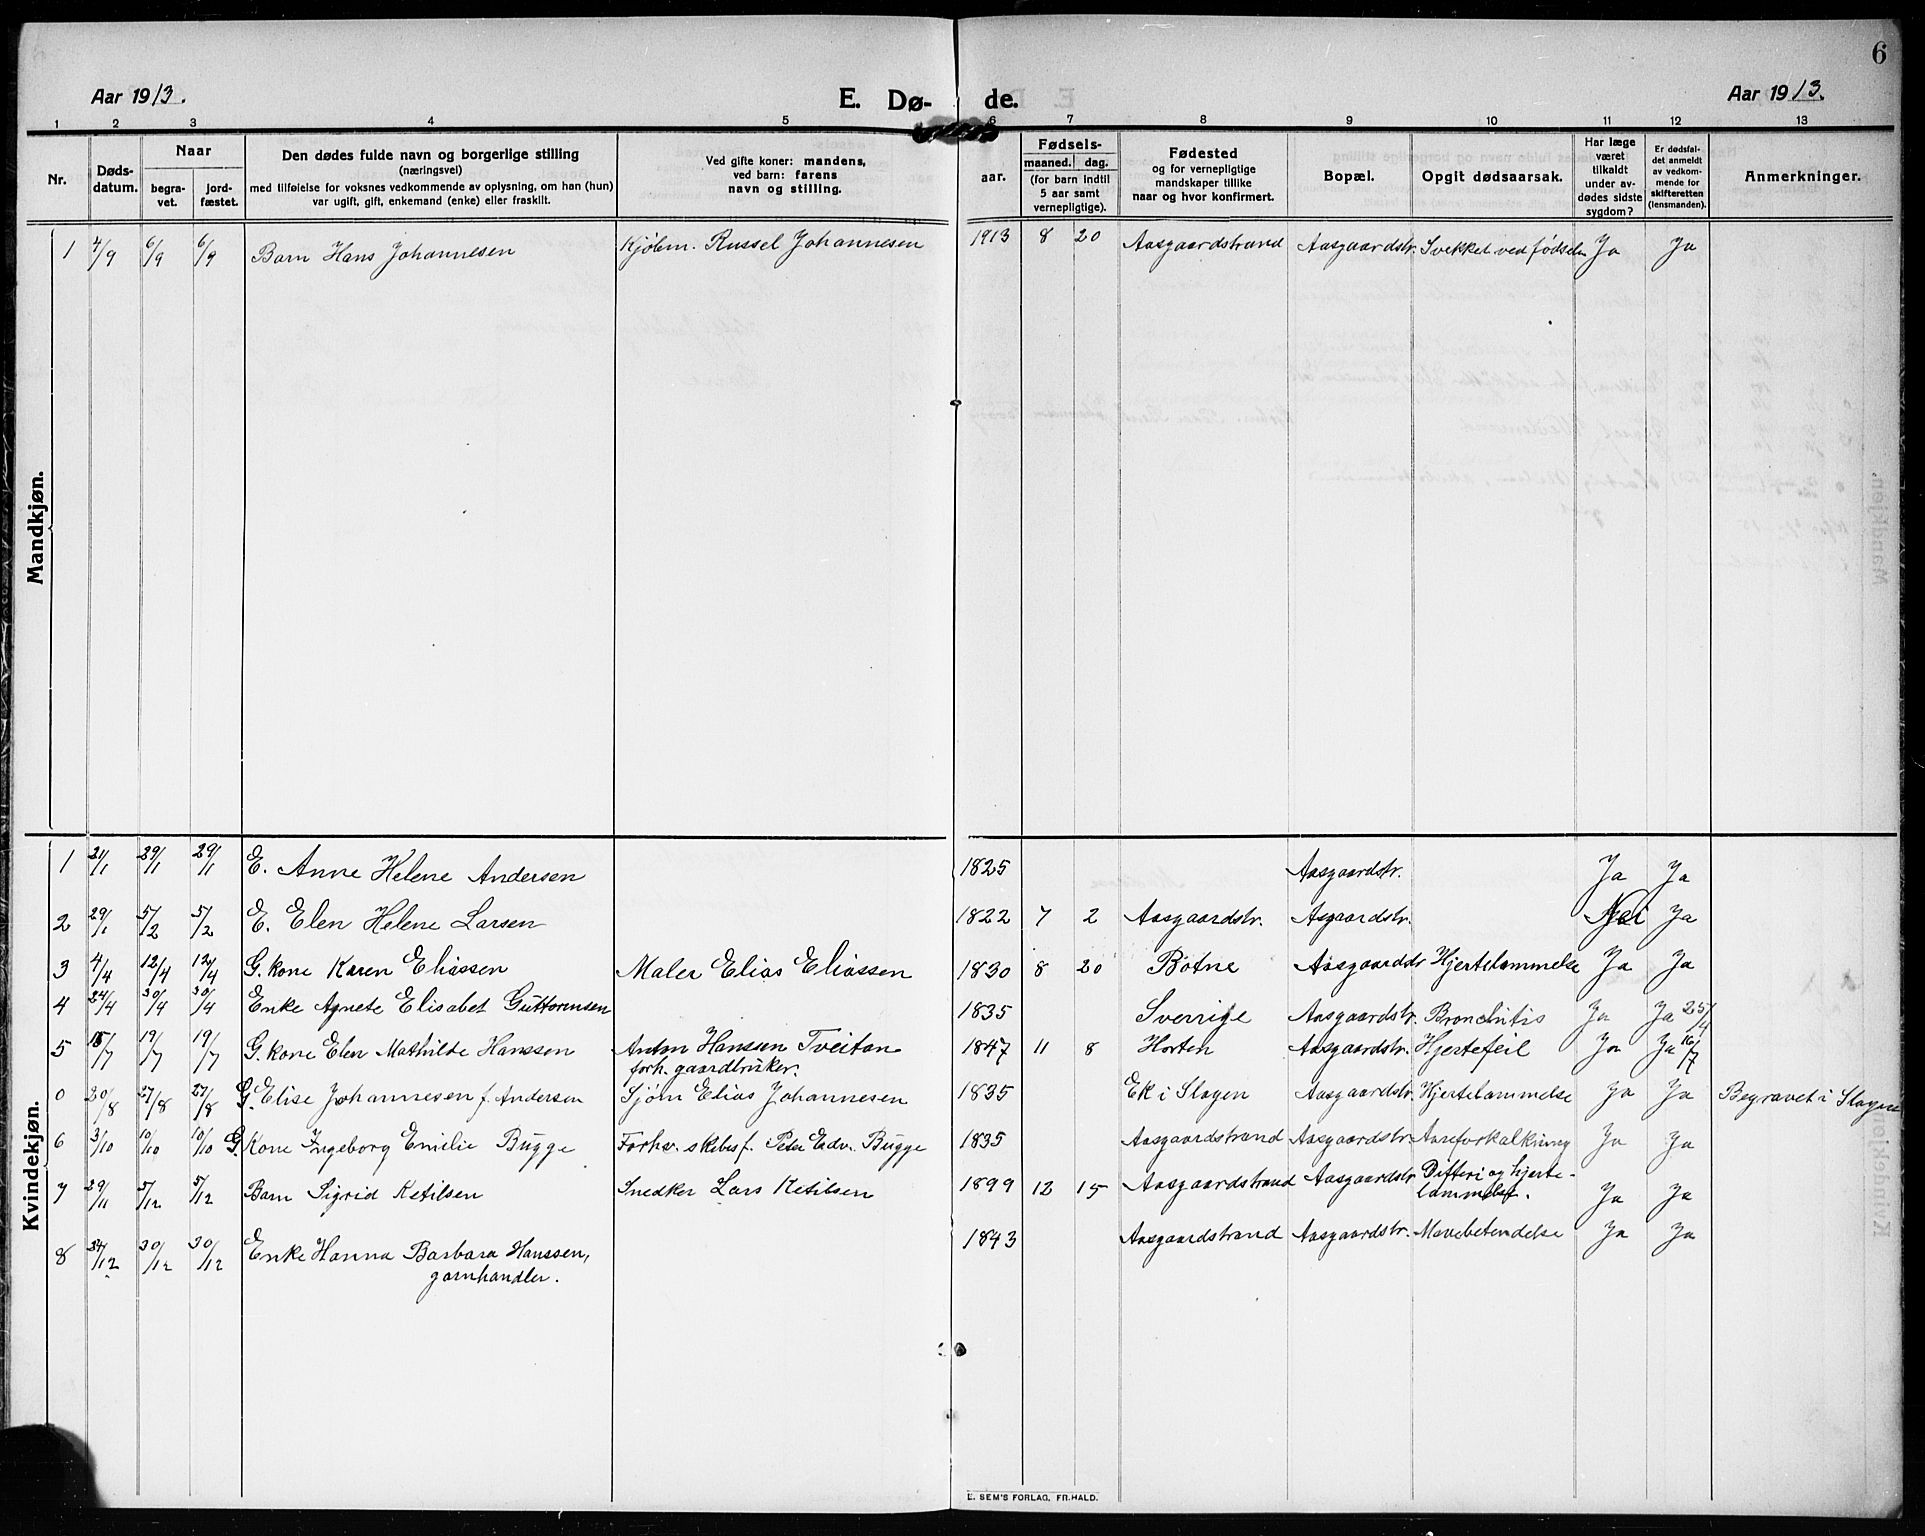 6
Aar 1913. E. Dø- de. Aar 1913.
1 2 3 4 5 6 7 8 9 10 11 12 13
Nr. Døds-datum. Naar begra-vet. jord-fæstet. Den dødes fulde navn og borgerlige stilling (næringsvei) med tilføielse for voksnes vedkommende av oplysning, om han (hun) var ugift, gift, enkemand (enke) eller fraskilt. Ved gifte koner: mandens, ved barn: farens navn og stilling. aar. Fødsels- maaned. dag. (for barn indtil 5 aar samt vernepligtige). Fødested og for vernepligtige mandskaper tillike naar og hvor konfirmert. Bopæl. Opgit dødsaarsak. Har læge været tilkaldt under av-dødes sidste sygdom? Er dødsfal-det anmeldt av vedkom-mende for skifteretten (lensmanden). Anmerkninger.
Mandkjøn.
1 4/9 6/9 6/9 Barn Hans Johannesen Kjøbm. Russel Johannesen 1913 8 20 Aasgaardstrand Aasgaardstr. Svekket ved fødselen Ja Ja
Kvindekjøn.
1 21/1 29/1 29/1 E. Anne Helene Andersen 1825 Aasgaardstr. Ja Ja
2 29/1 5/2 5/2 E. Elen Helene Larsen 1822 7 2 Aasgaardstr. Asgaardstr. Nei Ja
3 4/4 12/4 12/4 G. kone Karen Eliassen Maler Elias Eliassen 1830 8 20 Botne Aasgaardstr Hjertelammelse Ja Ja
4 24/4 30/4 30/4 Enke Agnete Elisabet Guttormsen 1835 Sverrige Aasgaardstr. Bronchitis Ja Ja 25/4
5 15/7 19/7 19/7 G. kone Elen Mathilde Hanssen Anton Hansen Tveitan 1847 11 8 Horten Aasgaardstr. Hjertefeil Ja Ja 16/7
forh. gaardbruker.
0 20/8 27/8 27/8 G. Elise Johannesen f. Andersen Sjøm Elias Johannesen 1835 Ek i Slagen Aasgaardstr. Hjertelammelse Ja Ja Begravet i Slagen
6 3/10 10/10 10/10 G. Kone Ingeborg Emilie Bugge Forhv. skibsf. Peter Edv. Bugge 1835 Aasgaardstrand Aasgaardstr. Aareforkalkning Ja Ja
7 29/11 5/12 5/12 Barn Sigrid Ketilsen Snedker Lars Ketilsen 1899 12 15 Aasgaardstrand Aasgaardstr. Difteri og hjerte-
lammelse. Ja Ja
8 24/12 30/12 30/12 Enke Hanna Barbara Hanssen, 1843 Aasgaardstrand Aasgaardstr. Mavebetendelse Ja Ja
garnhandler.
E. SEM'S FORLAG, FR.HALD.